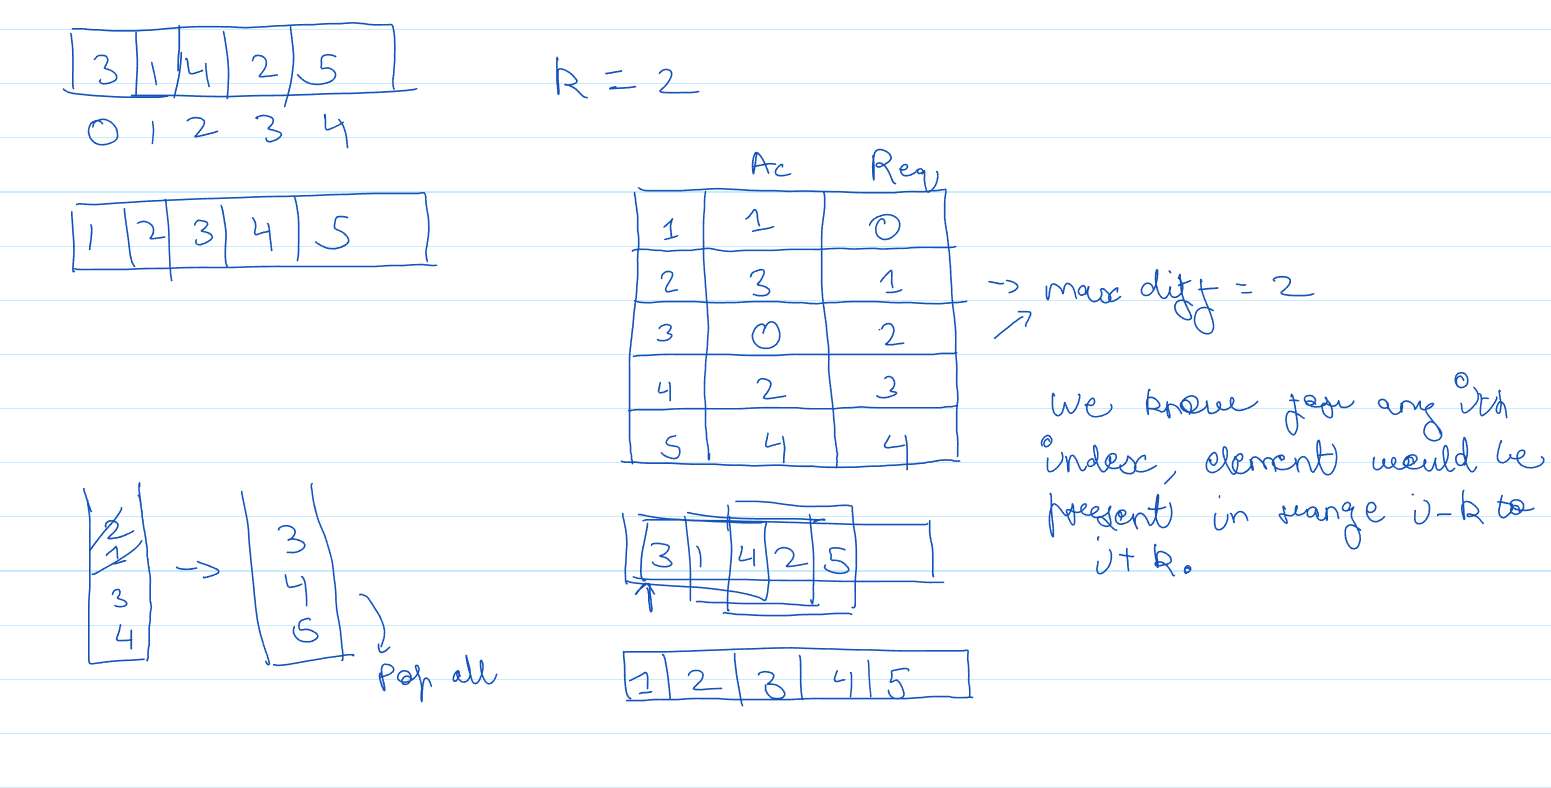 3 1 4 2 5
0 1 2 3 4
K = 2
1 2 3 4 5
Ac Req
1 1 0
2 3 1
3 0 2
4 2 3
5 4 4
→ max diff = 2
We know for any ith
index, element would be
present in range i-k to
i+k.
2
1
3
4
→
3
4
5
Pop all
3 1 4 2 5
1 2 3 4 5